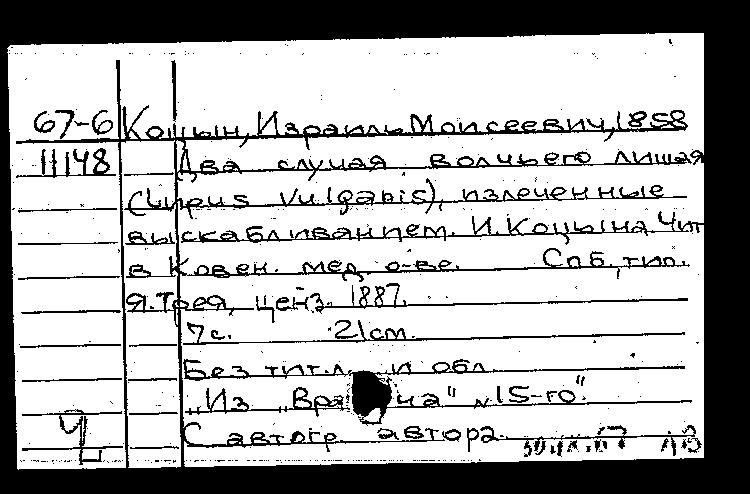 67-6 Коцын, Израиль Моисеевич, 1858
11148 Два случая волчьего лишая
(Lupus vulgaris), излеченные
выскабливанием. И. Коцына. Чит.
в Ковен. мед. о-ве. Спб., тип.
Я. Трея, ценз. 1887.
7 с. 21 см.
Без тит. л. и обл.
„Из „Врача" „15-го".
С автогр. автора
30.IX.67